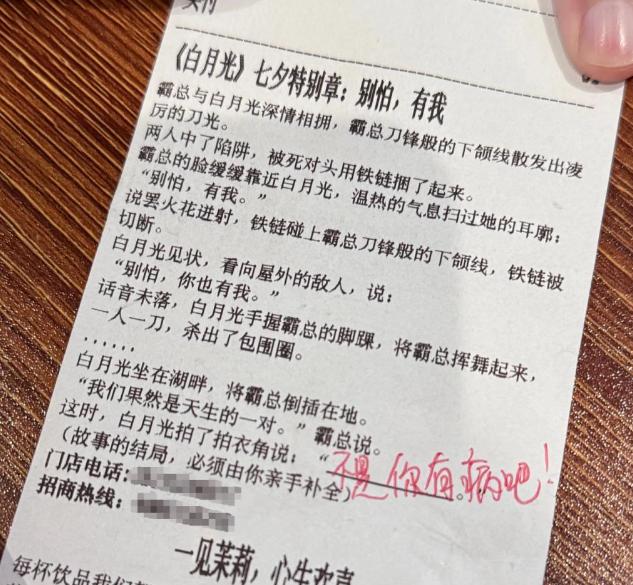 《白月光》七夕特别章：别怕，有我
霸总与白月光深情相拥，霸总刀锋般的下颌线散发出凌
厉的刀光。
两人中了陷阱，被死对头用铁链捆了起来。
霸总的脸缓缓靠近白月光，温热的气息扫过她的耳廓：
“别怕，有我。”
说罢火花迸射，铁链碰上霸总刀锋般的下颌线，铁链被
切断。
白月光见状，看向屋外的敌人，说：
“别怕，你也有我。”
话音未落，白月光手握霸总的脚踝，将霸总挥舞起来，
一人一刀，杀出了包围圈。
······
白月光坐在湖畔，将霸总倒插在地。
“我们果然是天生的一对。”霸总说。
这时，白月光拍了拍衣角说：“不是你有病吧！。”
（故事的结局，必须由你亲手补全）
门店电话：
招商热线：
一见茉莉，心生欢喜